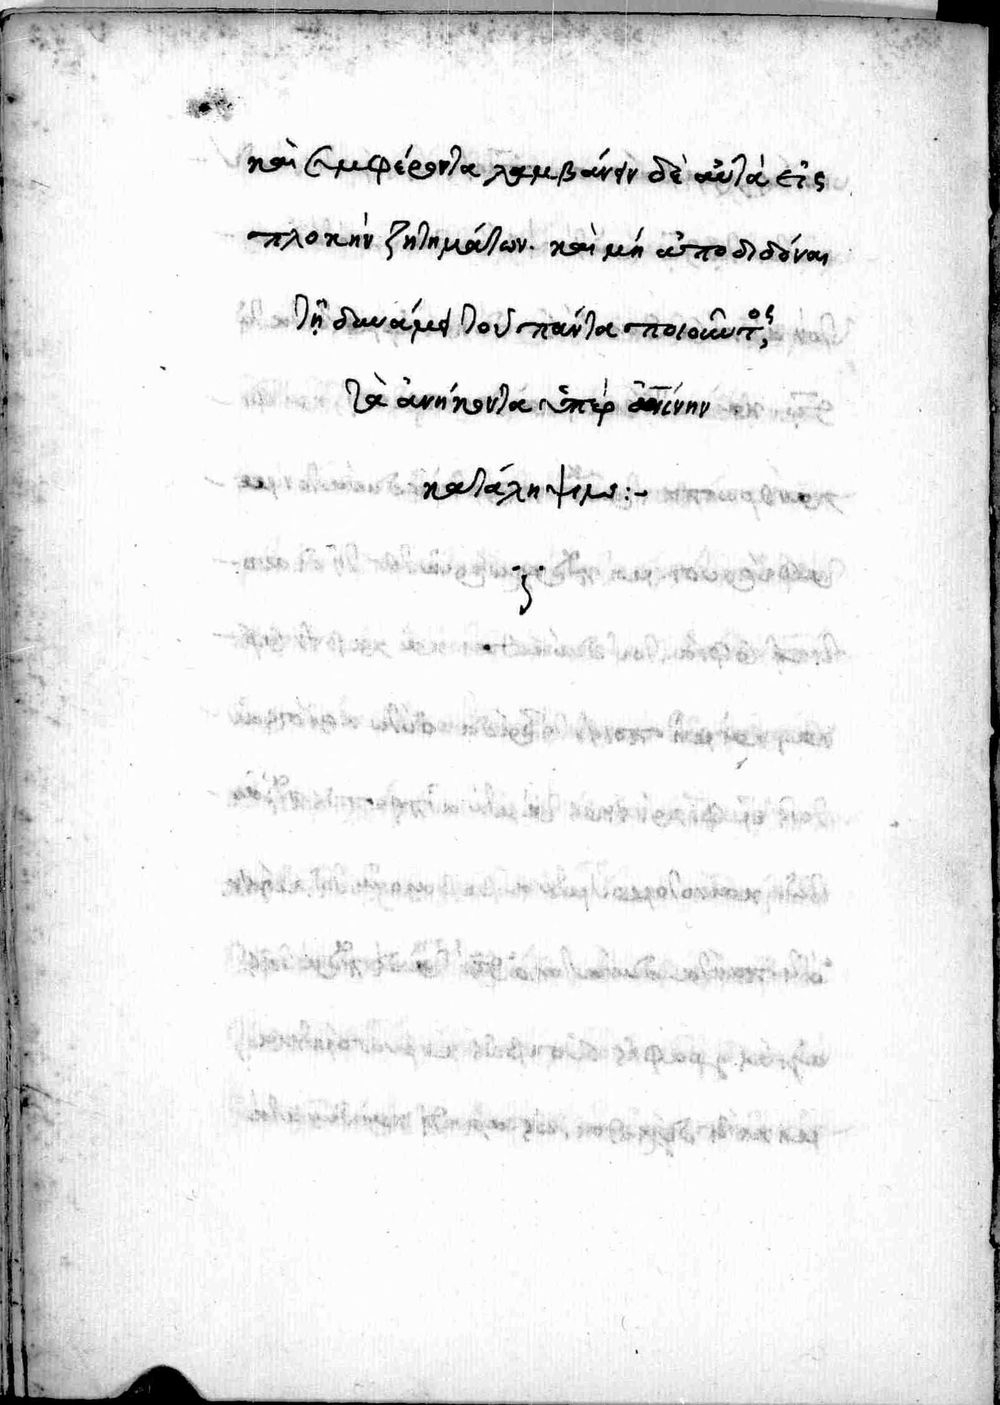 καὶ συμφέροντα λαμβάνειν δὲ αὐτὰ εἰς
πλοκὴν ζητημάτων· καὶ μὴ ἀποδιδόναι
τῇ δυνάμει τοῦ πάντα ποιοῦντος,
τὰ ἀνήκοντα ὑπὲρ
κατάληψιν :-